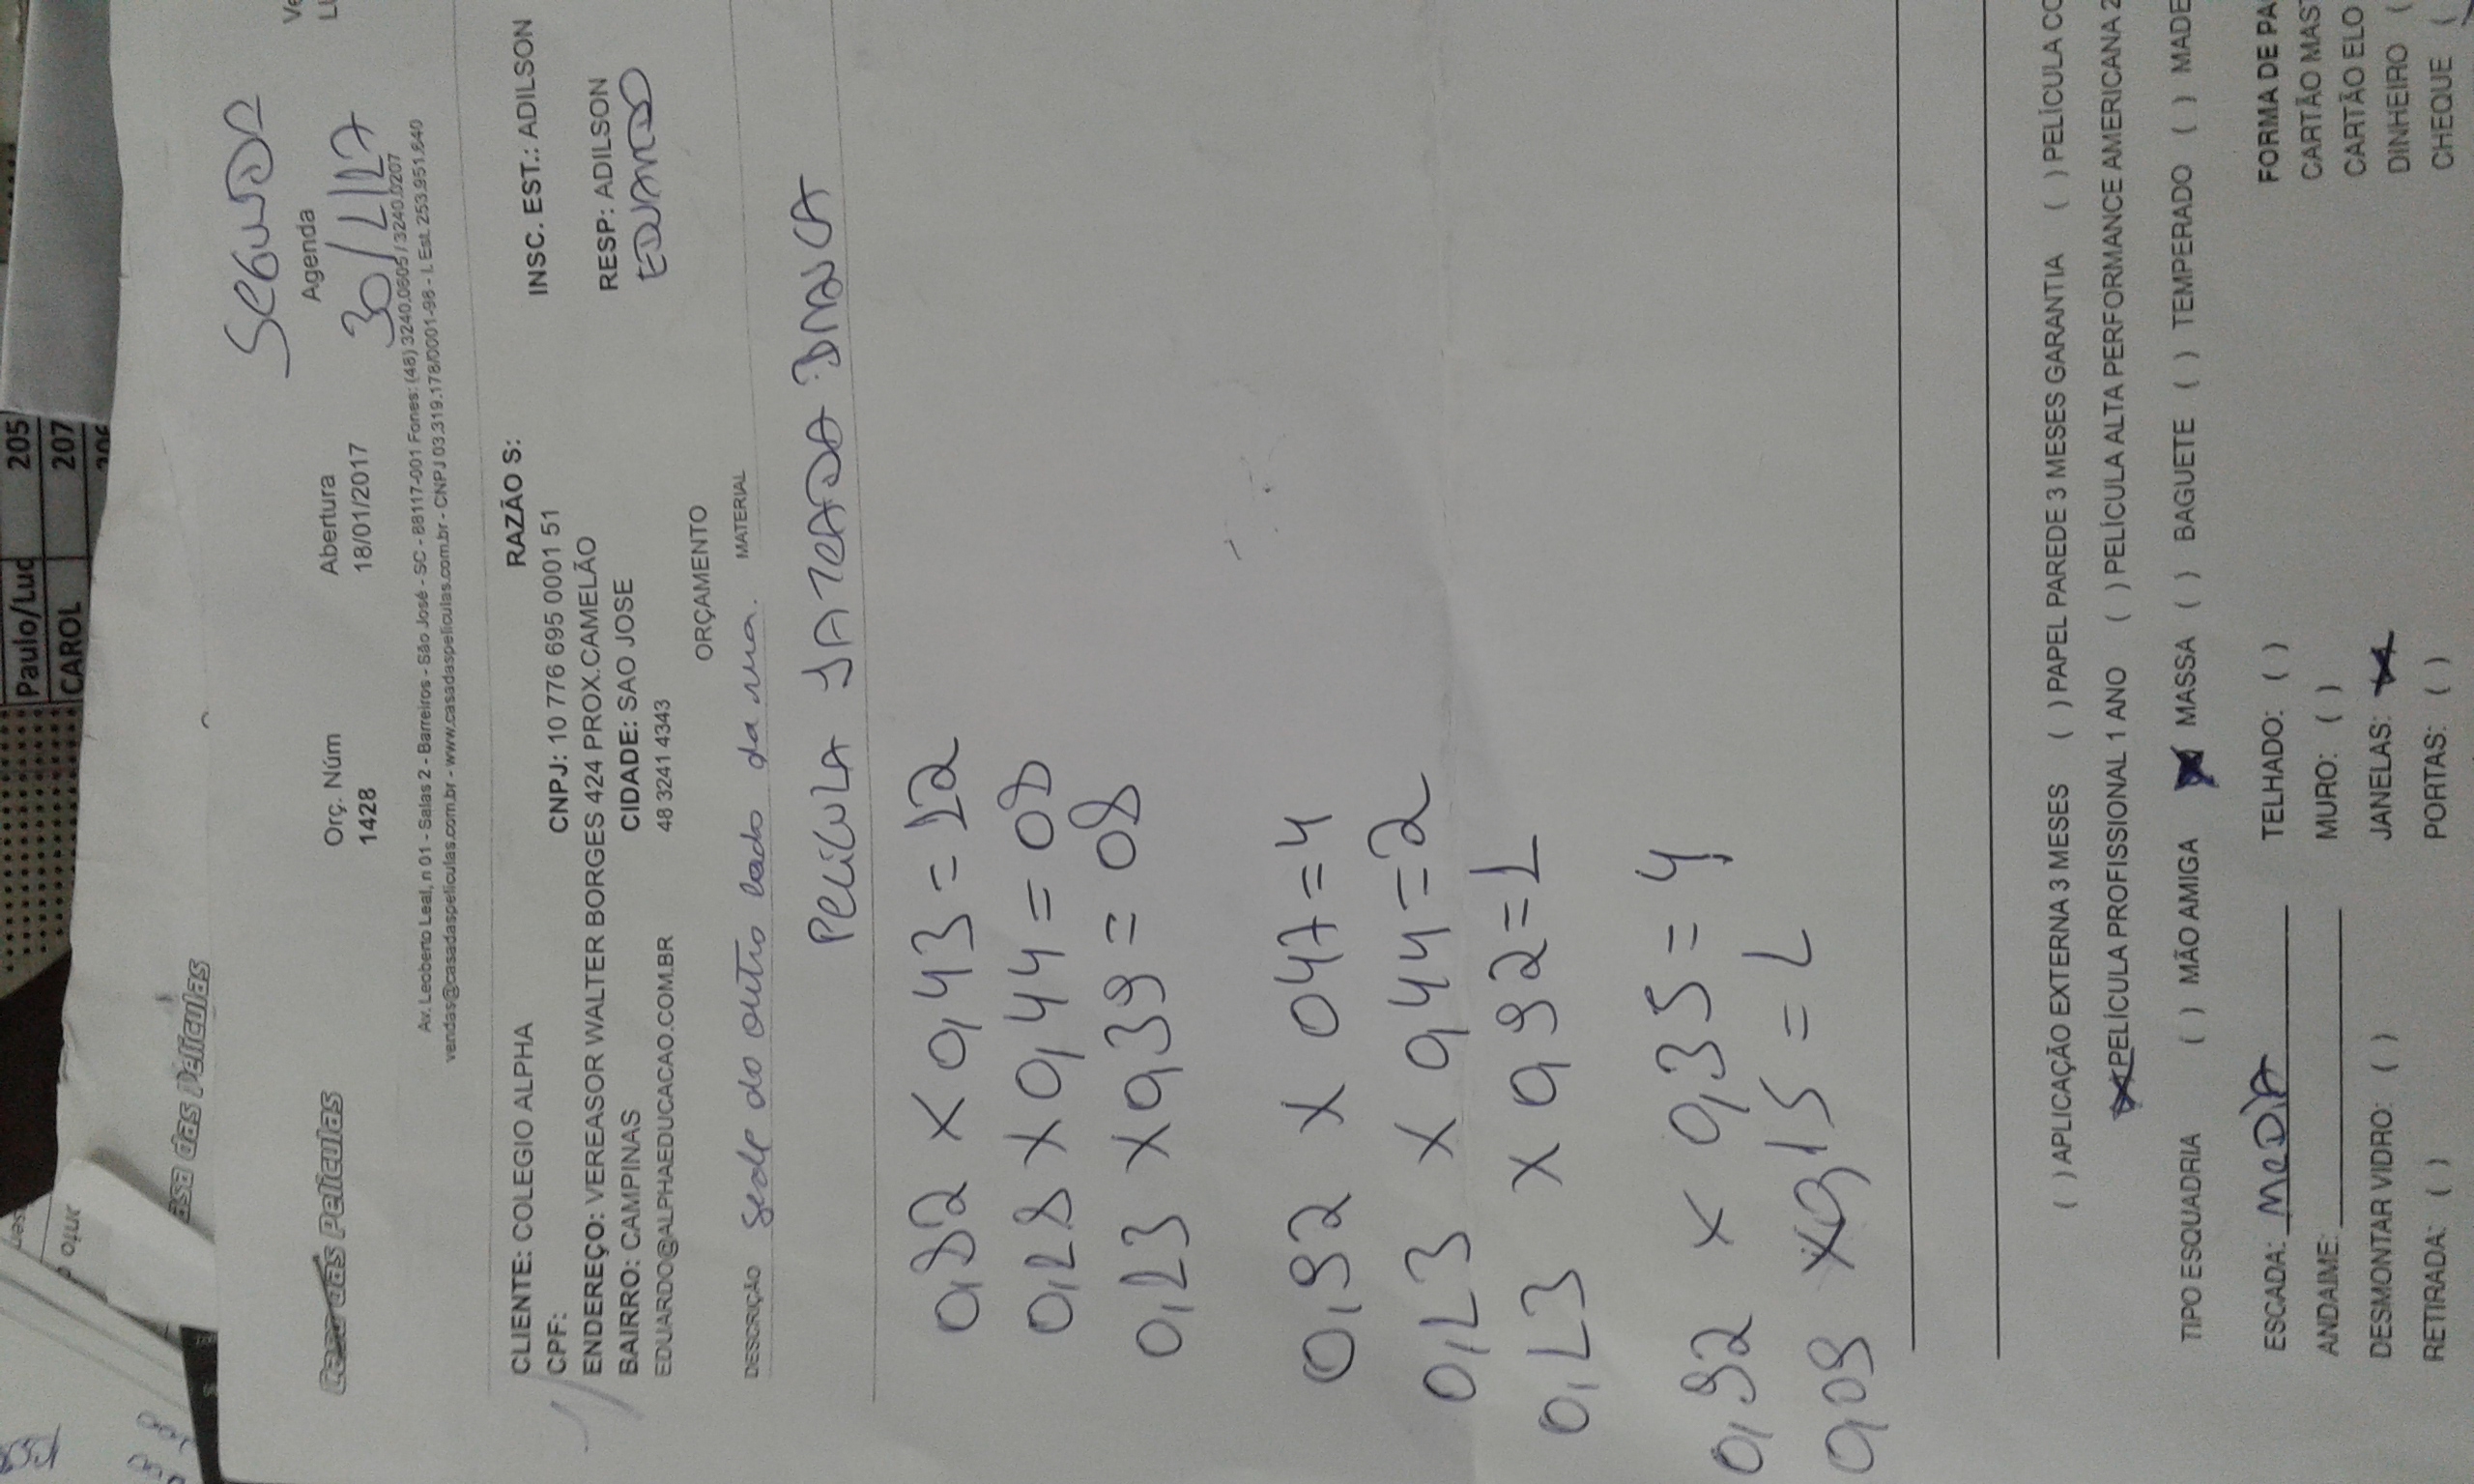 Paulo/Luc 205
CAROL 207
asa das Películas
Casa das Películas
Orç. Núm
1428
Abertura
18/01/2017
Segunda
Agenda
30/1/17
Av. Leoberto Leal, n 01 - Salas 2 - Barreiros - São José - SC - 88117-001 Fones: (48) 3240.0605 / 3240.0207
vendas@casadaspeliculas.com.br - www.casadaspeliculas.com.br - CNPJ 03.319.178/0001-98 - I. Est. 253.951.640
CLIENTE: COLEGIO ALPHA RAZÃO S: INSC. EST.: ADILSON
CPF: CNPJ: 10 776 695 0001 51
ENDEREÇO: VEREASOR WALTER BORGES 424 PROX.CAMELÃO RESP: ADILSON
BAIRRO: CAMPINAS CIDADE: SAO JOSE EDUARDO
EDUARDO@ALPHAEDUCACAO.COM.BR 48 3241 4343
ORÇAMENTO
DESCRIÇÃO sede do outro lado da rua. MATERIAL
PELICULA JATEADA BRANCA
0,82 x 0,43 = 12
0,18 x 0,44 = 08
0,13 x 0,39 = 08
0,92 x 047 = 4
0,13 x 0,44 = 2
0,13 x 0,92 = 1
0,92 x 0,35 = 4
0,09 x 0,15 = 1
( ) APLICAÇÃO EXTERNA 3 MESES ( ) PAPEL PAREDE 3 MESES GARANTIA ( ) PELÍCULA CO
PELÍCULA PROFISSIONAL 1 ANO ( ) PELÍCULA ALTA PERFORMANCE AMERICANA 2
TIPO ESQUADRIA ( ) MÃO AMIGA (X) MASSA ( ) BAGUETE ( ) TEMPERADO ( ) MADE
ESCADA: MEDIA TELHADO: ( ) FORMA DE PA
ANDAIME: MURO: ( ) CARTÃO MAS
DESMONTAR VIDRO: ( ) JANELAS: X CARTÃO ELO
RETIRADA: ( ) PORTAS: ( ) DINHEIRO (
CHEQUE (